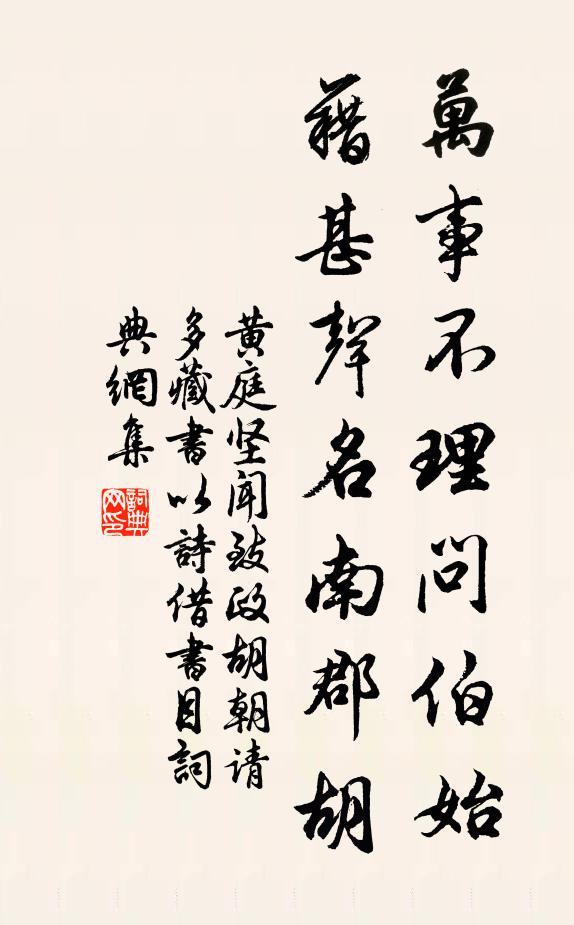 萬事不理問伯始
藉甚聲名南郡胡
黄庭坚聞致政胡朝请
多藏書以詩借書目詞
典網集
詞典網印